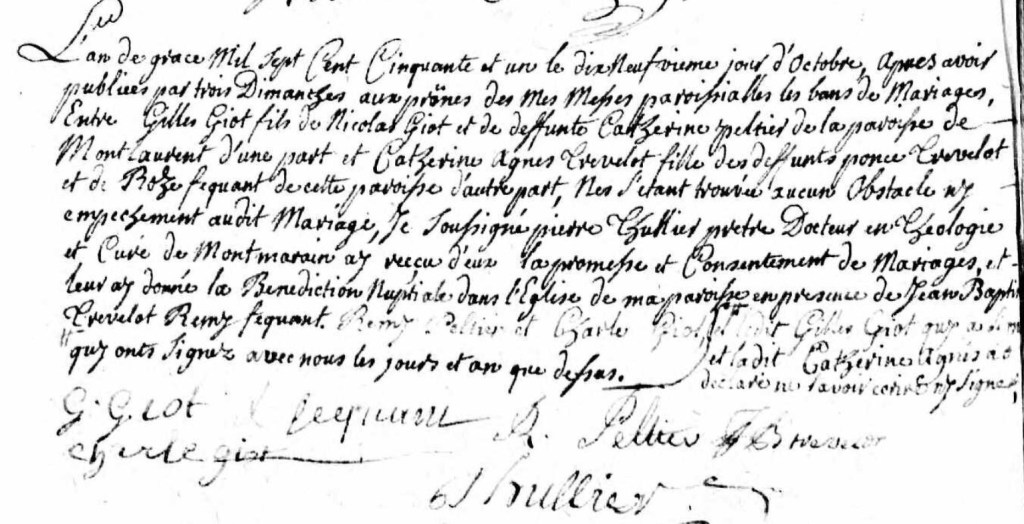 L'an de grace Mil Sept Cent Cinquante et un le dix Neufvieme jour d'Octobre, apres avoir
publiees par trois Dimanches aux prônes des Mes Messes paroissialles les bans de Mariages,
Entre Gilles Giot fils de Nicolas Giot et de deffunte Catherine peltier de la paroisse de
Montlaurent d'une part et Catherine Agnes Trevelot fille des deffunts ponce Trevelot
et de Roze fequant de cette paroisse d'autre part, Nes s'etant trouvée aucun Obstacle ny
empechement audit Mariage, Je Soussigné pierre Thullier pretre Docteur en Theologie
et Curé de Montmarain ay reccu d'eux la promesse et Consentement de Mariages, et
leur ay donné la Benediction Nuptiale dans l'Eglise de ma paroisse en presence de Jean Baptis
Trevelot Remy fequant. Remy Peltier et Charle Giot ledit Gilles Giot quy a
quy onts Signez avec nous les jours et an que dessus. et ladit Catherine Agnes a
declaré ne savoir ny Signer,
G. Giot fequant
R. Peltier J B trevelot
charle giot
Thullier